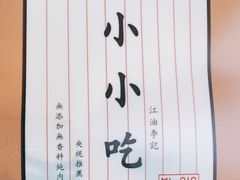 江油李記
小小吃
央視推薦
無添加無香料純肉